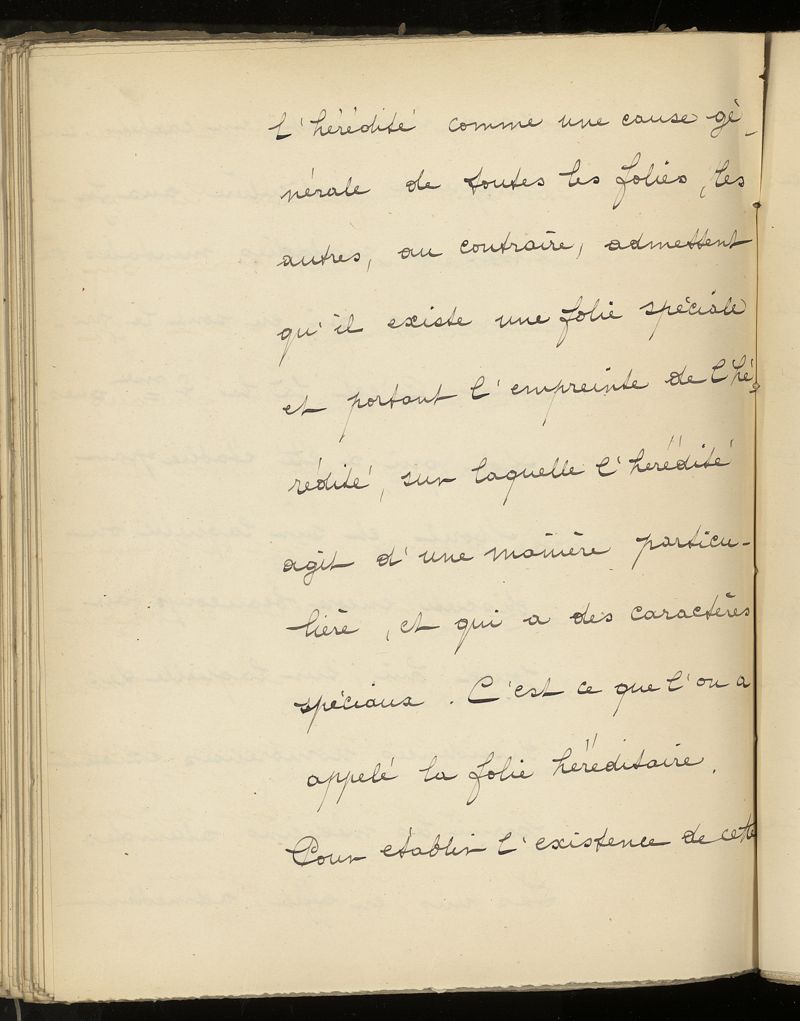 l'hérédité comme une cause gé-
nérale de toutes les folies, les
autres, au contraire, admettent
qu'il existe une folie spéciale
et portant l'empreinte de l'hé-
rédité, sur laquelle l'hérédité
agit d'une manière particu-
lière, et qui a des caractères
spéciaux. C'est ce que l'on a
appelé la folie héréditaire.
Pour établir l'existence de cette